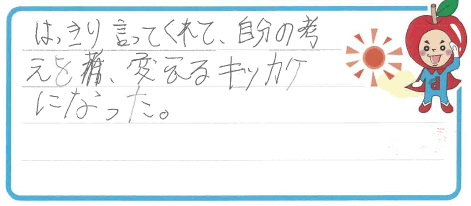 はっきり言ってくれて、自分の考
えを、変えるキッカケ
になった。